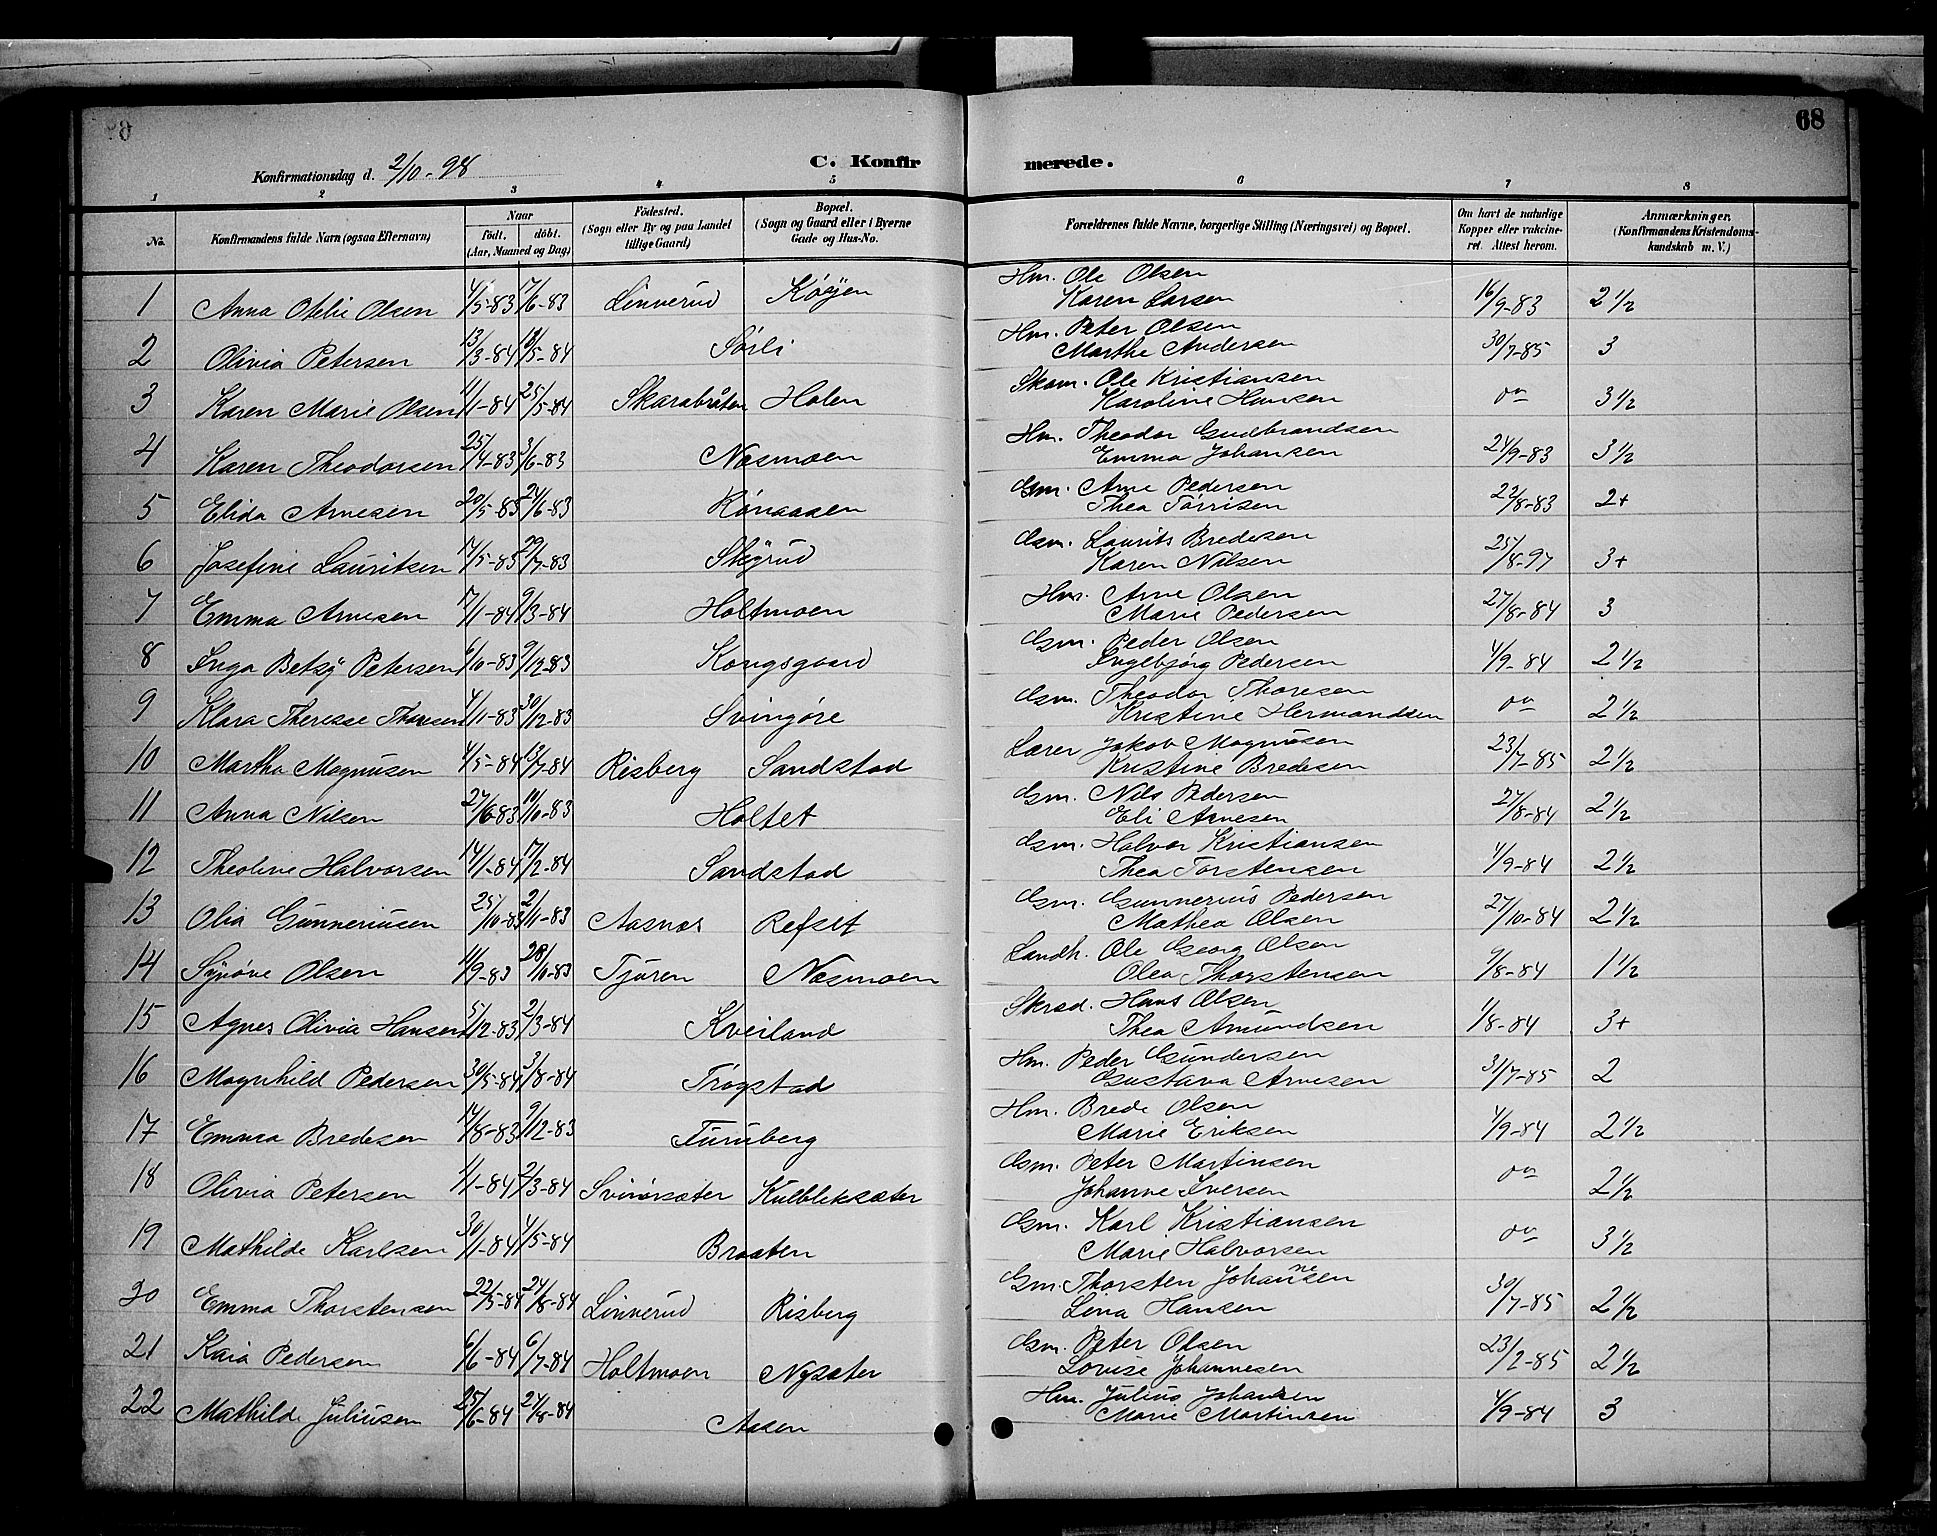 68
C. Konfirmerede.
Konfirmationsdag d. 2/10-98
1 2 3 4 5 6 7 8
No. Konfirmandens fulde Navn (ogsaa Efternavn) Naar født. døbt. (Aar, Maaned og Dag) Födested. (Sogn eller By og paa Landet tillige Gaard) Bopæl. (Sogn og Gaard eller i Byerne Gade og Hus-No. Forældrenes fulde Navne, borgerlige Stilling (Næringsvei) og Bopæl. Om havt de naturlige Kopper eller vakcineret. Attest herom. Anmærkninger. (Konfirmandens Kristendomskundskab m. V.)
1 Anna Otilie Olsen 4/5-83 7/6-83 Linnerud Køyen Hm. Ole Olsen
Karen Larsen 16/9-83 2 1/2
2 Olivia Petersen 13/3-84 18/5-84 Sørli Hm. Peter Olsen
Marthe Andersen 30/7-85 3
3 Karen Marie Olsen 11/1-84 25/5-84 Skarabråten Holen Skom. Ole Kristiansen
Karoline Hansen 3 1/2
4 Karen Theodorsen 25/4-83 3/6-83 Næsmoen Hm. Theodor Gudbrandsen
Emma Johansen 24/9-83 3 1/2
5 Elida Arnesen 20/5-83 24/6-83 Rønaasen Gm. Arne Pedersen
Thea Torrisen 22/8-83 2+
6 Josefine Lauritsen 17/5-83 29/7-83 Skyrud Gm. Laurits Bredesen
Karen Nilsen 25/8-97 3+
7 Emma Arnesen 17/1-84 9/3-84 Holtmoen Hm. Arne Olsen
Marie Pedersen 27/8-84 3
8 Inga Betzy Petersen 6/10-83 9/12-83 Kongsgaard Gm. Peder Olsen
Ingebjørg Pedersen 4/9-84 2 1/2
9 Klara Therese Thoresen 4/11-83 30/12-83 Svingøre Gm. Theodor Thoresen
Kristine Hermandsen 2 1/2
10 Martha Magnusen 4/5-84 13/7-84 Risberg Sandstad Lærer Jakob Magnusen
Kristine Bredesen 23/7-85 2 1/2
11 Anna Nilsen 27/6-83 14/10-83 Holtet Gm. Nils Pedersen
Eli Arnesen 27/8-84 2 1/2
12 Theoline Halvorsen 14/1-84 17/2-84 Sandstad Gm. Halvor Kristiansen
Thea Torstensen 4/9-84 2 1/2
13 Olia Gunneriusen 25/10-83 2/11-83 Aasnæs Refset Gm. Gunnerius Pedersen
Mathea Olsen 27/10-84 2 1/2
14 Synøve Olsen 11/9-83 28/10-83 Tjuren Næsmoen Landh. Ole Georg Olsen
Olea Thorstensen 9/8-84 1 1/2
15 Agnes Olivia Hansen 5/12-83 2/3-84 Kveiland Skræd. Hans Olsen
Thea Amundsen 1/8-84 3+
16 Magnhild Pedersen 30/5-84 3/8-84 Trøgstad Hm. Peder Gundersen
Gustava Arnesen 31/7-85 2
17 Emma Bredesen 17/8-83 9/12-83 Furuberg Hm. Brede Olsen
Marie Eriksen 4/9-84 2 1/2
18 Olivia Petersen 1/1-84 2/3-84 Svinørsæter Kulbliksæter Gm. Peter Martinsen
Johanne Iversen 2 1/2
19 Mathilde Karlsen 30/1-84 4/5-84 Braaten Gm. Karl Kristiansen
Marie Halvorsen 3 1/2
20 Emma Thorstensen 22/5-84 24/8-84 Linnerud Risberg Gm. Thorsten Johannesen
Lina Hansen 30/7-85 2 1/2
21 Kaia Pedersen 6/6-84 6/7-84 Holtmoen Nysæter Gm. Peter Olsen
Lovise Johannesen 23/2-85 2 1/2
22 Mathilde Juliusen 25/6-84 24/8-84 Aasen Hm. Julius Johansen
Marie Martinsen 4/9-84 3